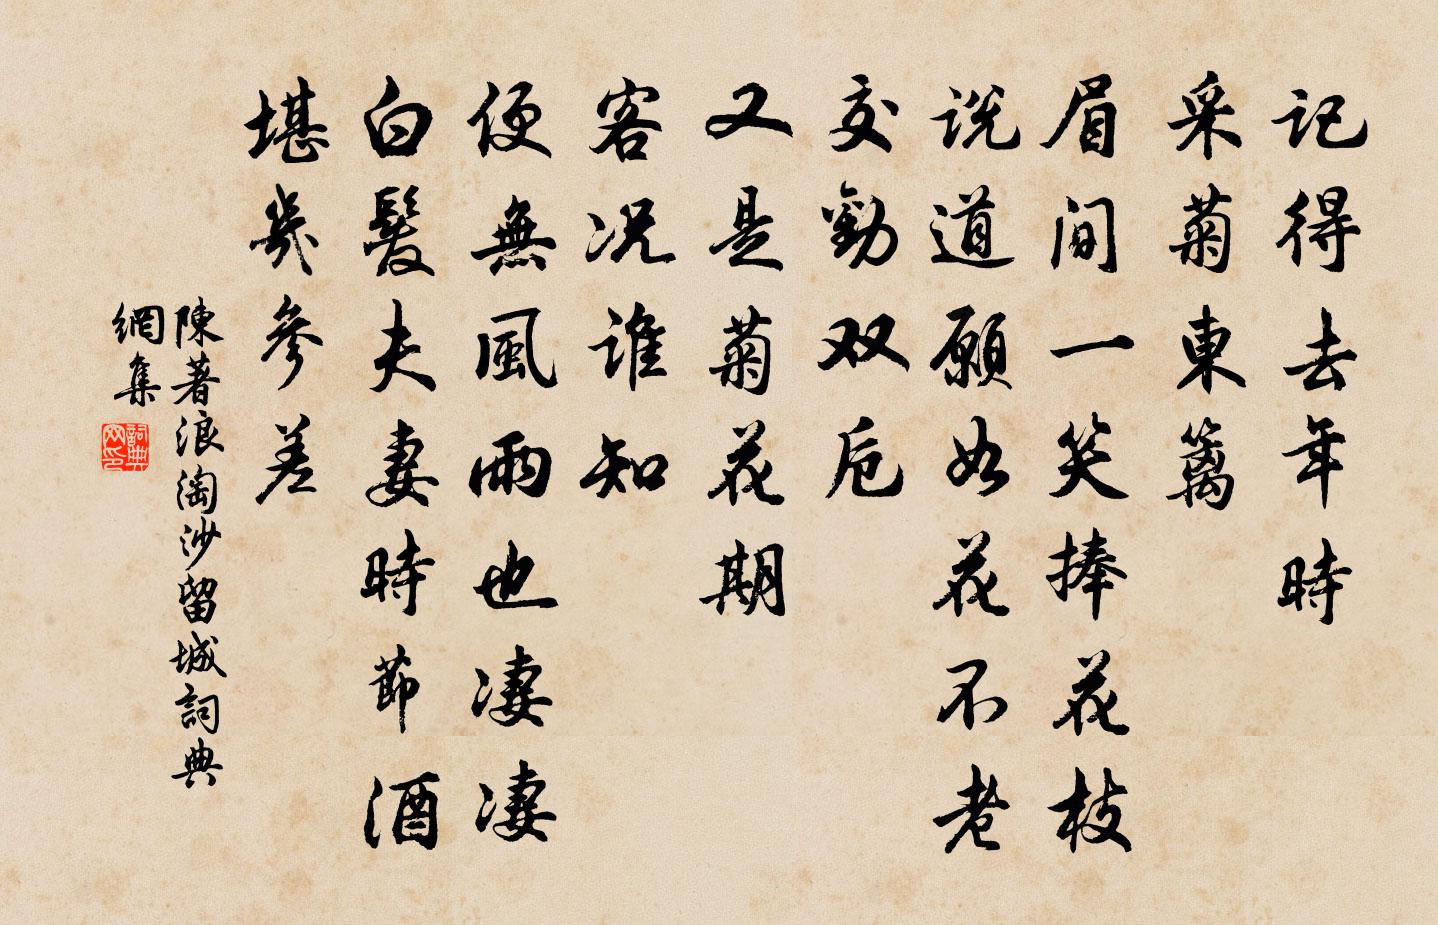 記得去年時
采菊東籬
眉間一笑捧花枝
説道願如花不老
交勸双卮
又是菊花期
客况誰知
便無風雨也凄凄
白髮夫妻時節酒
堪幾參差
陳著浪淘沙留城詞典
網集
詞典
网印